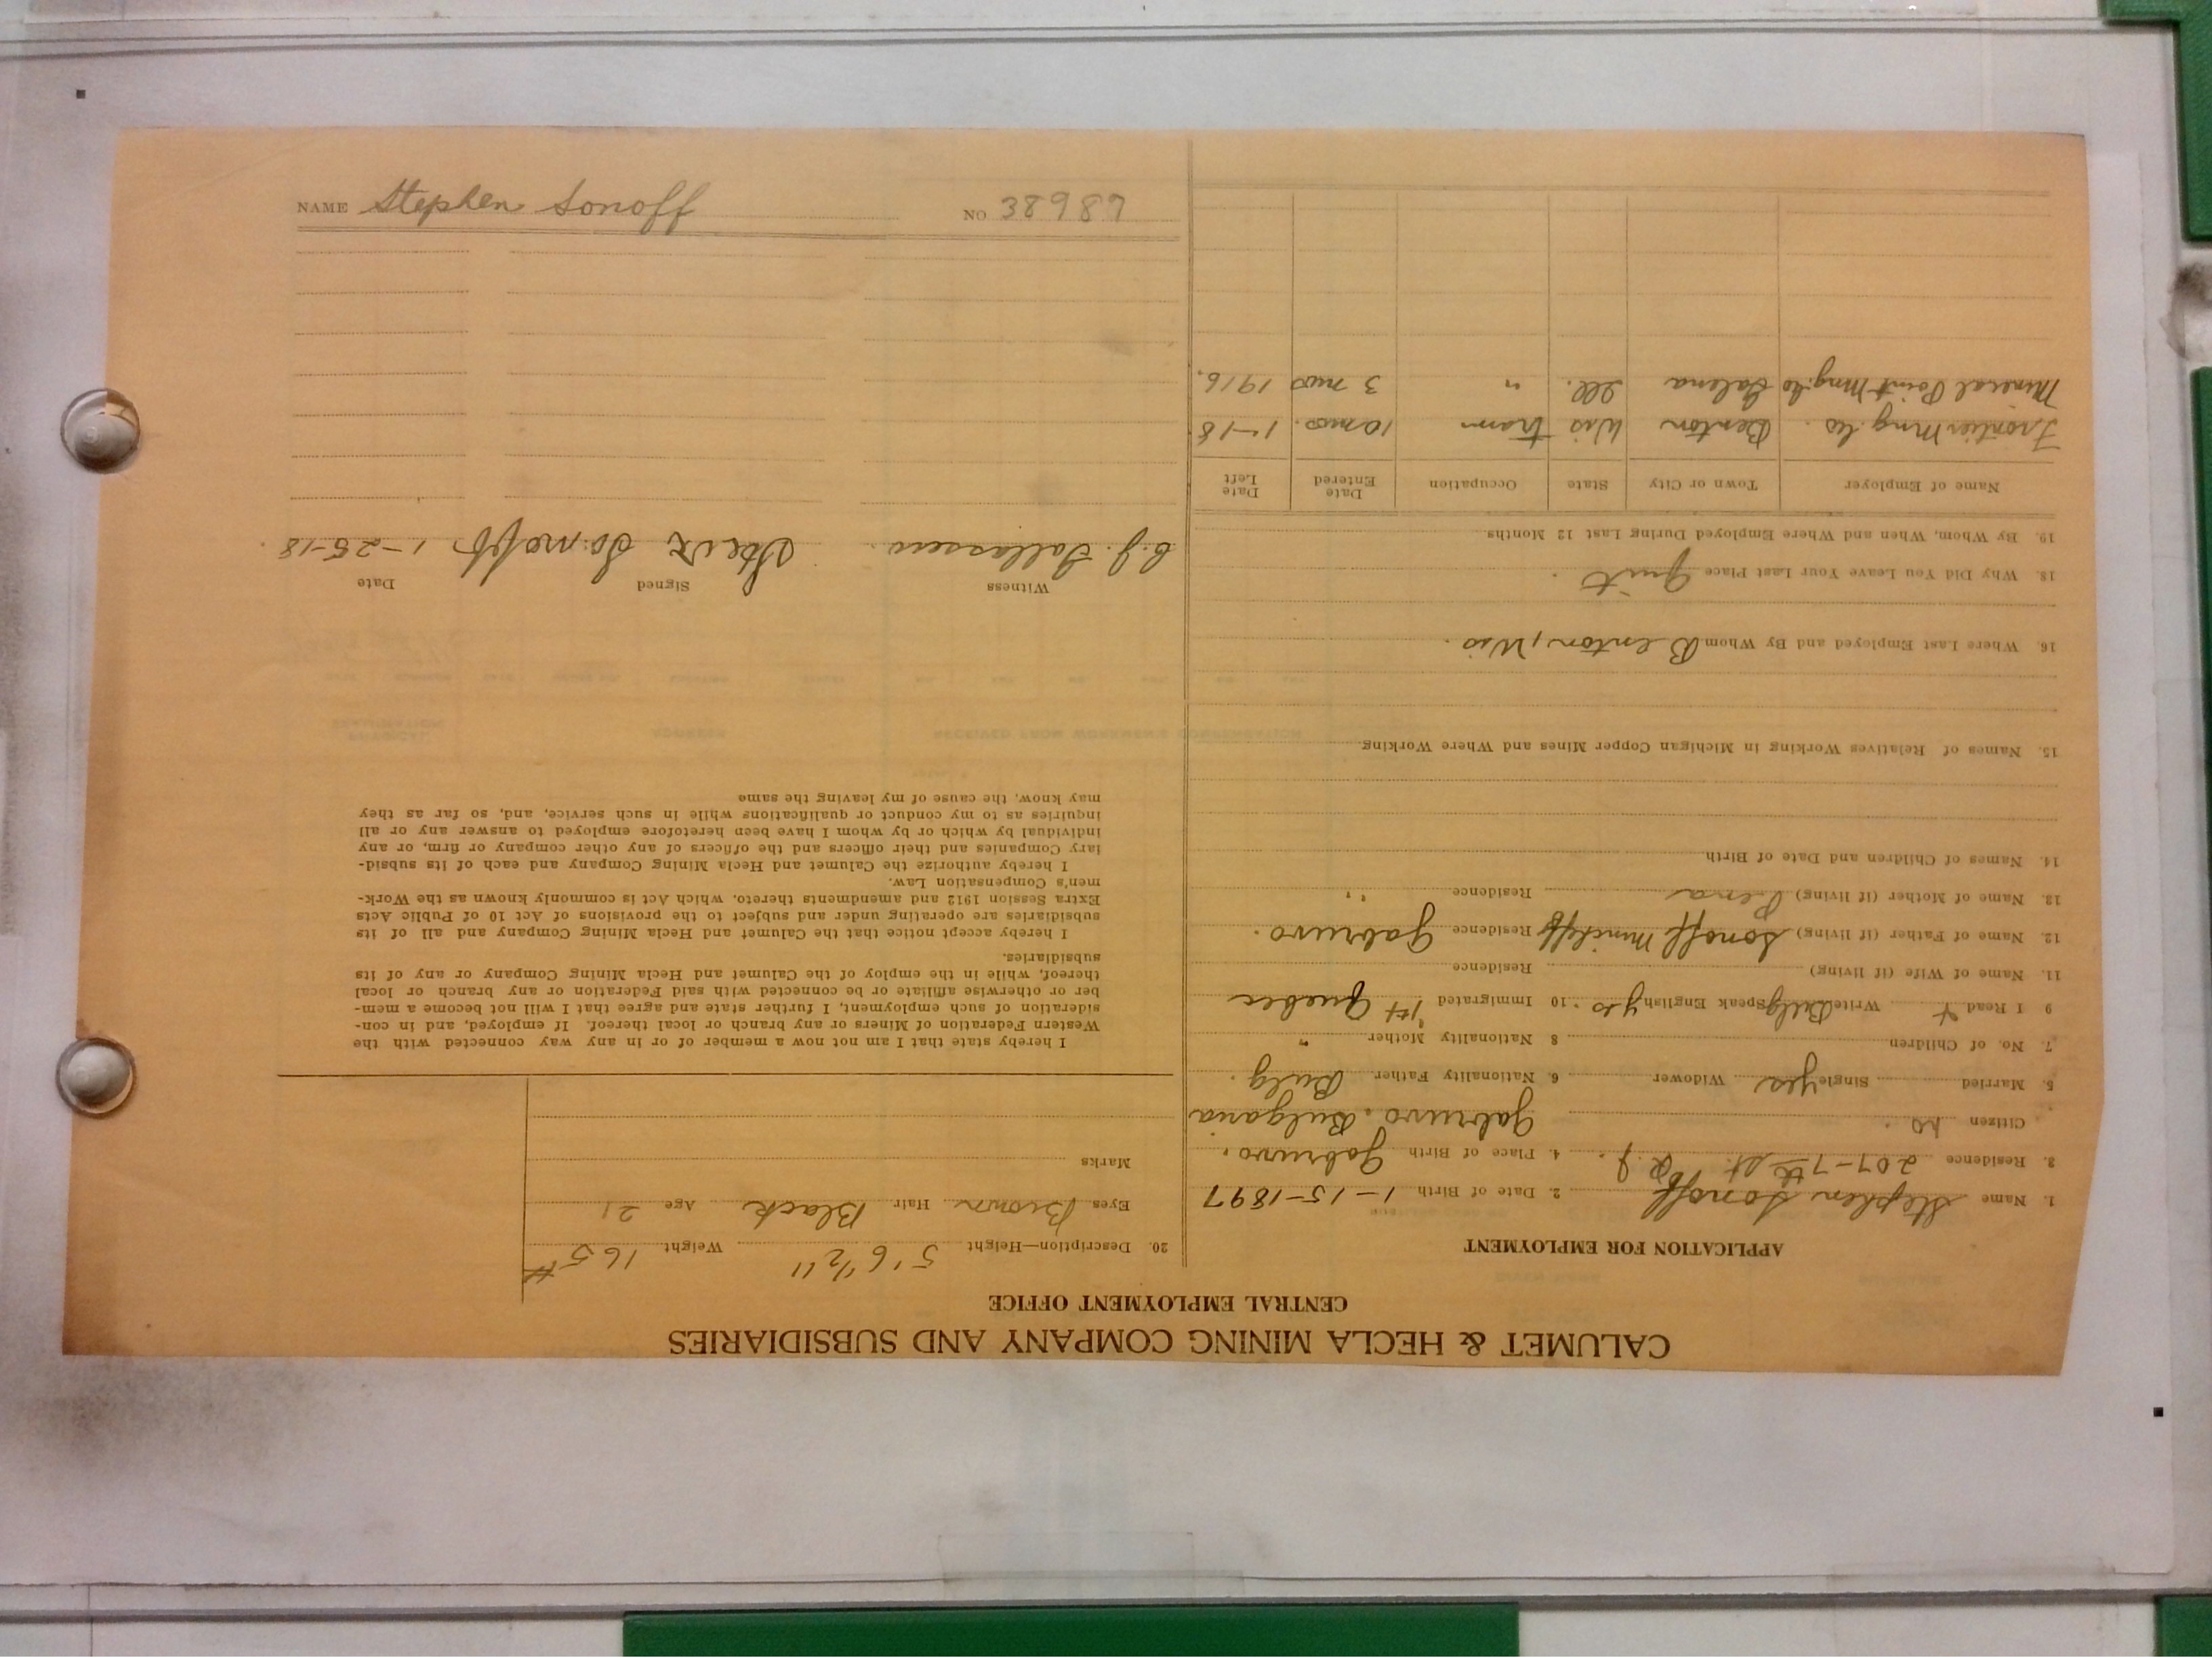 CALUMET & HECLA MINING COMPANY AND SUBSIDIARIES
CENTRAL EMPLOYMENT OFFICE
APPLICATION FOR EMPLOYMENT
1. Name Stephen Sonoff 2. Date of Birth 1-15-1897
3. Residence 207-7th St. 4. Place of Birth Gabruvo.
Citizen no. Gabruvo. Bulgaria
5. Married Single yes Widower 6. Nationality Father Bulg.
7. No. of Children 8 Nationality Mother "
9 I Read + Write Bulg Speak English yes. 10 Immigrated 1st Quebec
11. Name of Wife (if living) Residence
12. Name of Father (if living) Sonoff Residence Gabruvo.
13. Name of Mother (if living) Residence "
14. Names of Children and Date of Birth
15. Names of Relatives Working in Michigan Copper Mines and Where Working
16. Where Last Employed and By Whom Benton, Wis.
18. Why Did You Leave Your Last Place Quit.
19. By Whom, When and Where Employed During Last 12 Months.
Name of Employer Town or City State Occupation Date Entered Date Left
Frontier Mng. Co. Benton Wis tram 10 mos. 1-18
Mineral Point Mng. Co Galena Ill. " 3 mos 1916.
20. Description—Height 5' 6 1/2" Weight 165#
Eyes Brown Hair Black Age 21
Marks
I hereby state that I am not now a member of or in any way connected with the
Western Federation of Miners or any branch or local thereof. If employed, and in con-
sideration of such employment, I further state and agree that I will not become a mem-
ber or otherwise affiliate or be connected with said Federation or any branch or local
thereof, while in the employ of the Calumet and Hecla Mining Company or any of its
subsidiaries.
I hereby accept notice that the Calumet and Hecla Mining Company and all of its
subsidiaries are operating under and subject to the provisions of Act 10 of Public Acts
Extra Session 1912 and amendments thereto, which Act is commonly known as the Work-
men's Compensation Law.
I hereby authorize the Calumet and Hecla Mining Company and each of its subsid-
iary Companies and their officers and the officers of any other company or firm, or any
individual by which or by whom I have been heretofore employed to answer any or all
inquiries as to my conduct or qualifications while in such service, and, so far as they
may know, the cause of my leaving the same
Witness Signed Date
1-25-18.
NAME Stephen Sonoff NO 38987